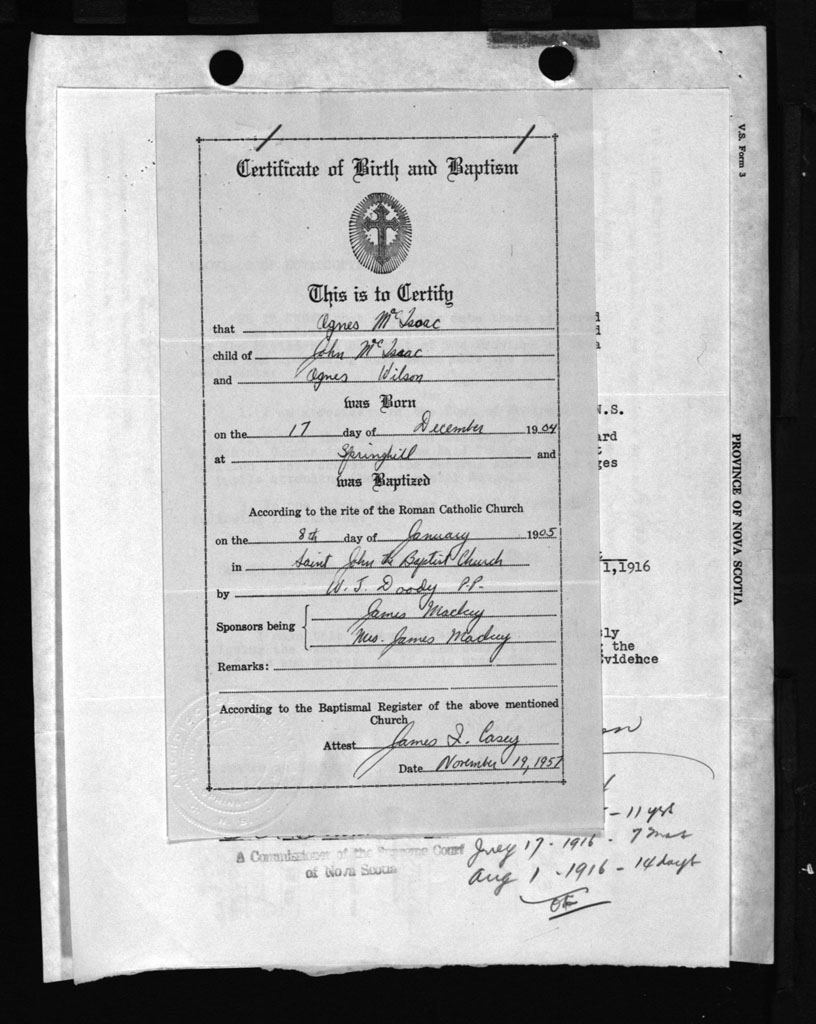 V.S. Form 3
PROVINCE OF NOVA SCOTIA
Certificate of Birth and Baptism
This is to Certify
that Agnes McIsaac
child of John McIsaac
and Agnes Wilson
was Born
on the 17 day of December 1904
at Springhill and
was Baptized
According to the rite of the Roman Catholic Church
on the 8th day of January 1905
in Saint John the Baptist Church
by W. J. Doody P.P.
Sponsors being James Mackey
Mrs. James Mackey
Remarks:
According to the Baptismal Register of the above mentioned
Church
Attest James I. Casey
Date November 19, 1957
N.S.
ard
ges
1,1916
sly
the
vidence
- 11 yrs
July 17 - 1916 - 7 mos
Aug 1 - 1916 - 14 days
A Commissioner of the Supreme Court
of Nova Scotia